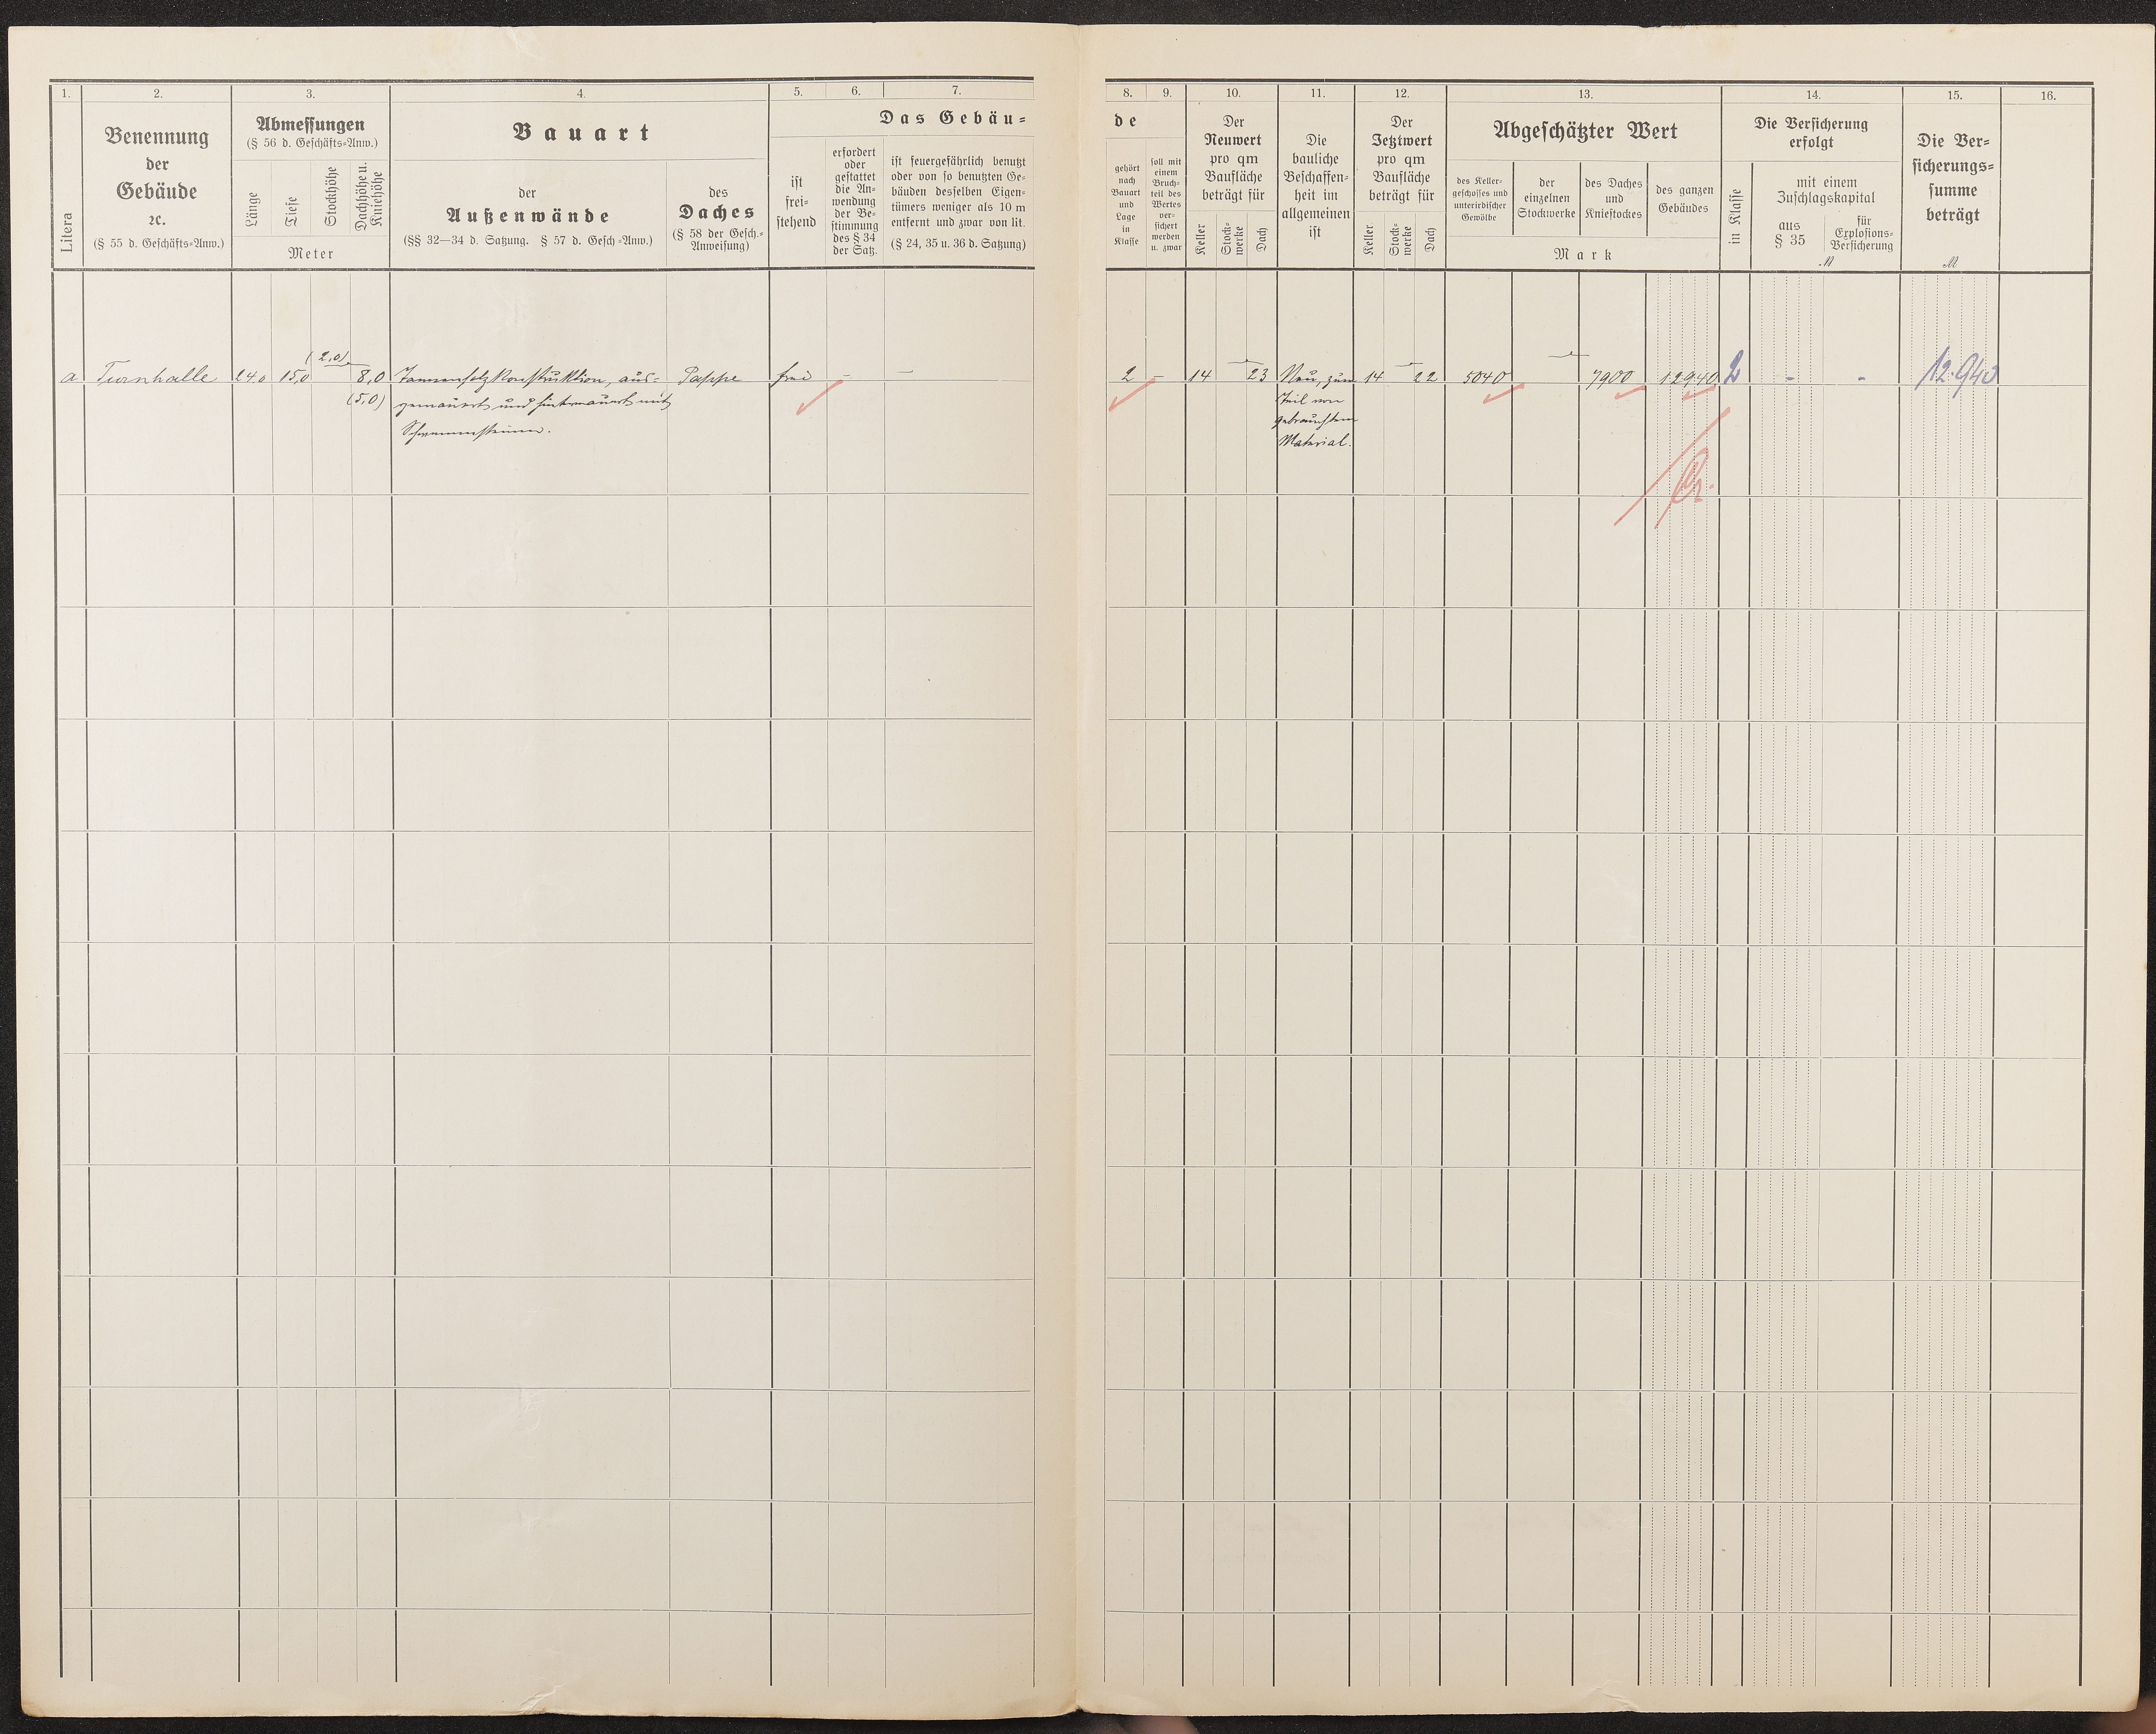 1. 2. 3. 4. 5. 6. 7.
Benennung
der
Gebäude
ꝛc.
(§ 55 d. Geschäfts-Anw.)
Litera
Abmessungen
(§ 56 d. Geschäfts-Anw.)
Länge
Tiefe
Stockhöhe
Dachhöhe u.
Kniehöhe
Meter
Bauart
der
Außenwände
(§§ 32—34 d. Satzung. § 57 d. Gesch.-Anw.)
des
Daches
(§ 58 der Gesch.-
Anweisung)
Das Gebäu-
ist
frei-
stehend
erfordert
oder
gestattet
die An-
wendung
der Be-
stimmung
des § 34
der Satz.
ist feuergefährlich benutzt
oder von so benutzten Ge-
bäuden desselben Eigen-
tümers weniger als 10 m
entfernt und zwar von lit.
(§ 24, 35 u. 36 d. Satzung)
(2,0)
a Turnhalle 24,0 15,0 8,0 Tannenholzkonstruktion, aus- Pappe frei - -
(5,0) gemauert und hintermauert mit
Schwemmsteinen.
8. 9. 10. 11. 12. 13. 14. 15. 16.
de
gehört
nach
Bauart
und
Lage
in
Klasse
soll mit
einem
Bruch-
teil des
Wertes
ver-
sichert
werden
u. zwar
Der
Neuwert
pro qm
Baufläche
beträgt für
Keller
Stock-
werke
Dach
Die
bauliche
Beschaffen-
heit im
allgemeinen
ist
Der
Jetztwert
pro qm
Baufläche
beträgt für
Keller
Stock-
werke
Dach
Abgeschätzter Wert
des Keller-
geschosses und
unterirdischer
Gewölbe
der
einzelnen
Stockwerke
des Daches
und
Kniestockes
des ganzen
Gebäudes
Mark
Die Versicherung
erfolgt
in Klasse
mit einem
Zuschlagskapital
aus
§ 35
für
Explosions-
Versicherung
M
Die Ver-
sicherungs-
summe
beträgt
M
2 - 14 23 Neu, zum 14 22 5040 7900 12940 2 - - 12.940
Teil von
gebrauchtem
Material.